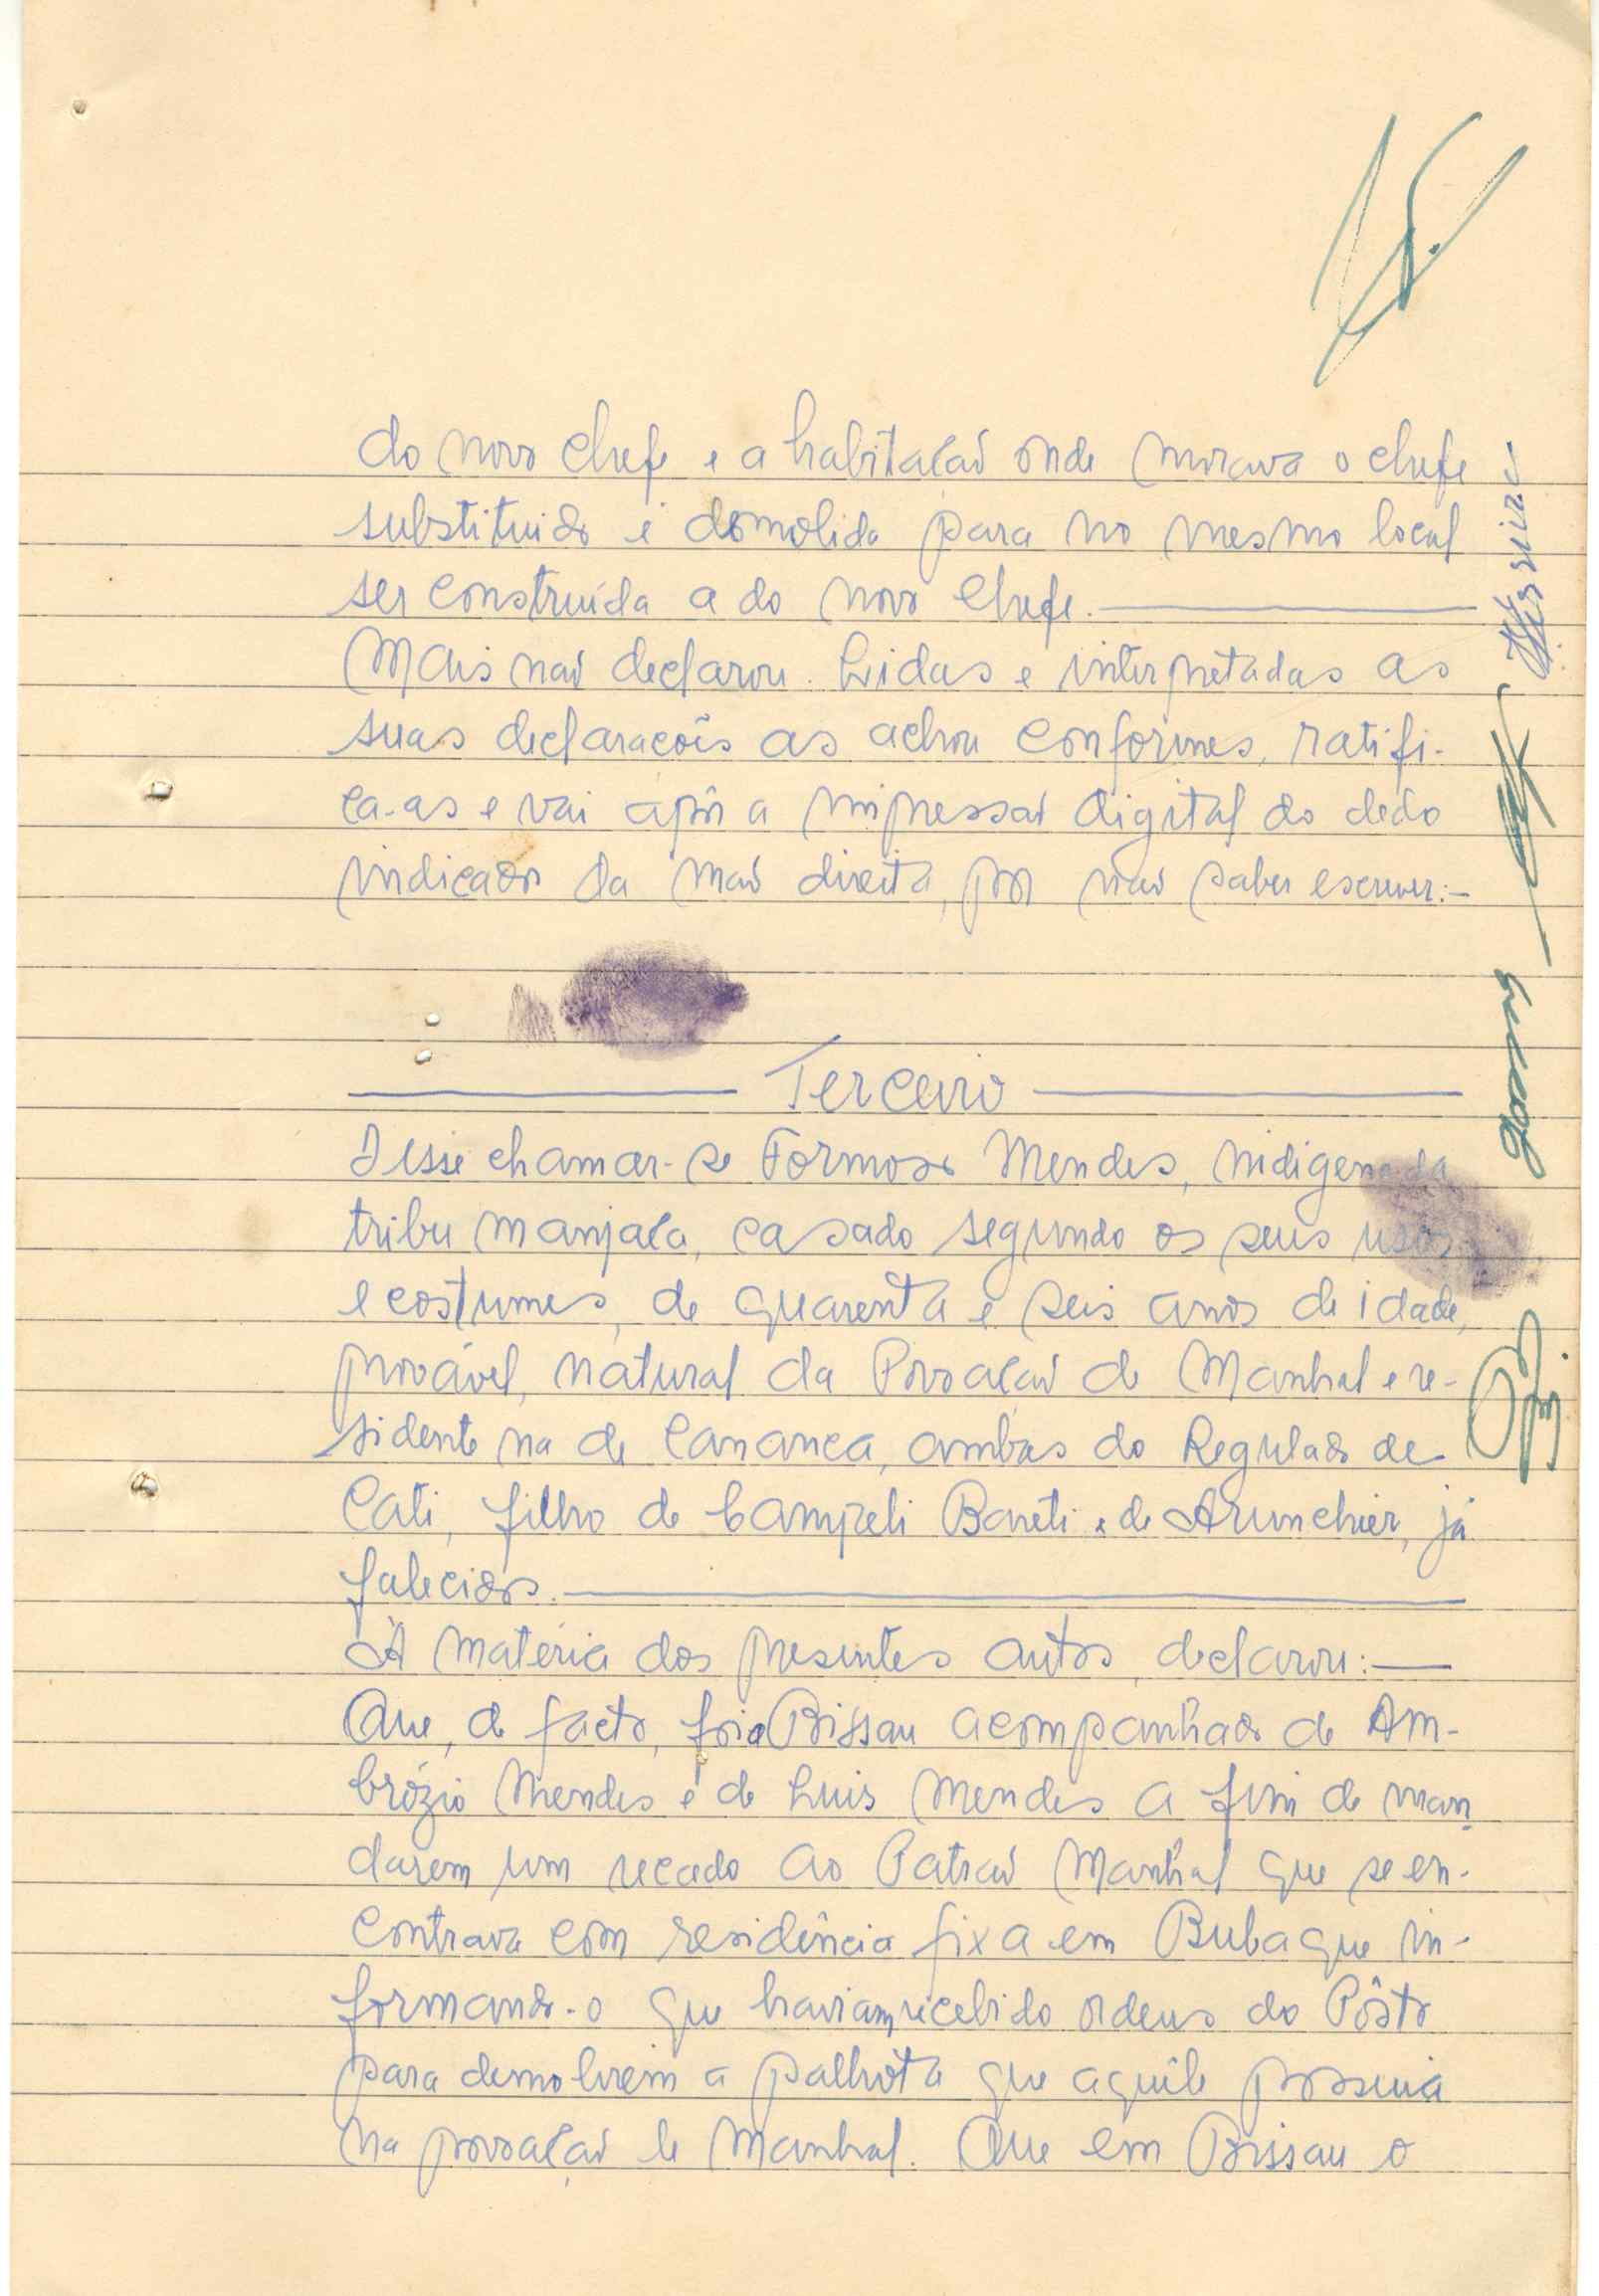 do novo chefe e a habitação onde morava o chefe
substituido é demolida para no mesmo local
ser construída a do novo chefe.
Mais não declarou. Lidas e interpretadas as
suas declarações as achou conformes, ratifi-
ca-as e vai apôr a impressão digital do dedo
indicador da mão direita, por não saber escrever:-
Terceiro
Disse chamar-se Formoso Mendes, indigena da
tribu manjaca, casado segundo os seus usos
e costumes, de quarenta e seis anos de idade,
provável, natural da Povoação de Manhal e re-
sidente na de Cananca, ambas do Regulado de
Cati, filho de Campeli Baneti e de Arunchier, já
falecidos.
À matéria dos presentes autos, declarou:
Que, de facto, foi a Bissau acompanhado de Am-
brózio Mendes e de Luis Mendes a fim de man-
darem um recado ao Patrão Manhal que se en-
contrava com residência fixa em Bubaque in-
formando-o que haviam recebido ordens do Pôsto
para demolirem a palhota que aquêle possuia
na povoação de Manhal. Que em Bissau o